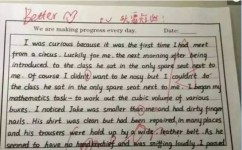 Better
We are making progress every day. Date:
I was curious because it was the first time I had meet
from a circus. Luckily for me, the next morning after being
introduced to the class he sat in the only spare seat next to
me. Of course I didn't want to be nosy but I couldn't
the class he sat in the only spare seat next to me. I began my
mathematics task - to work out the cubic volume of various
boxes. I noticed Jake was smaller than me and had dirty finger
nails. His shirt was clean but had been repaired, in many places and
his trousers were held up by a wide, leather belt. As he
seemed to have no handkerchief and was sniffing loudly I passed